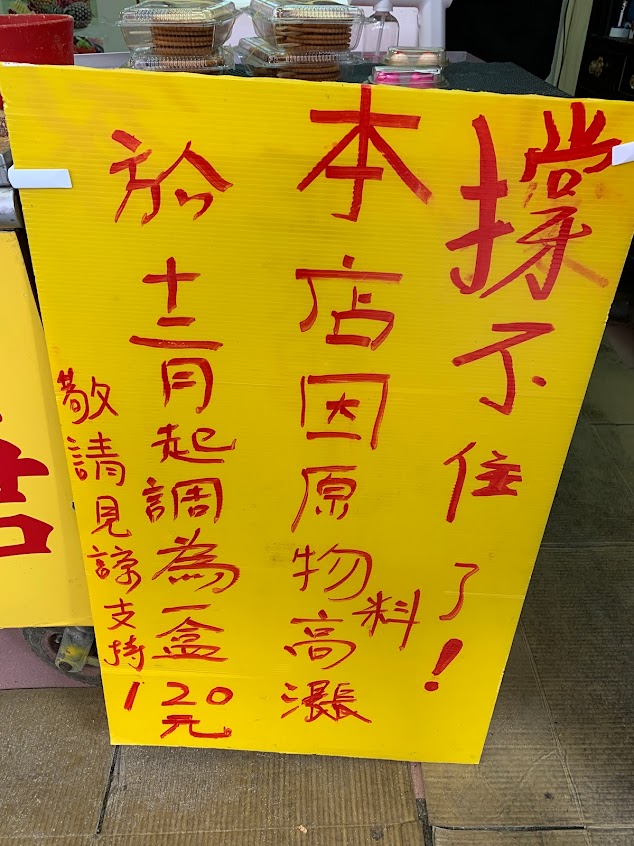 撐不住了!
本店因原物料高漲
於十二月起調為一盒120元
敬請見諒支持